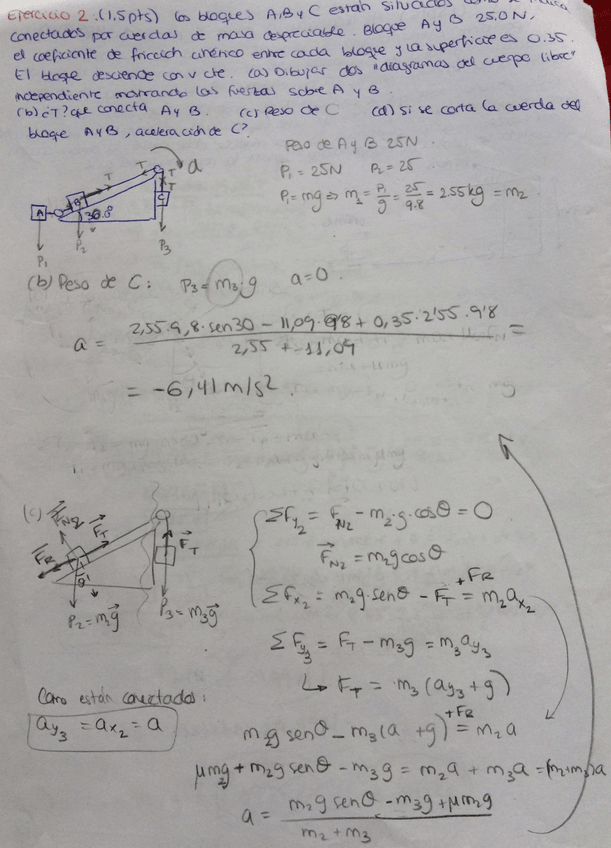 Ejercicio 2. (1,5pts) Los bloques A, B y C están situados como se
conectados por cuerdas de masa despreciable. Bloque A y B 25.0 N,
el coeficiente de fricción cinético entre cada bloque y la superficie es 0.35.
El bloque desciende con v cte. (a) Dibujar dos "diagramas del cuerpo libre"
independiente mostrando las fuerzas sobre A y B.
(b) ¿T? que conecta A y B. (c) Peso de C (d) si se corta la cuerda del
bloque A y B, aceleración de C?
Peso de A y B 25N
P₁ = 25N P₂ = 25
P₁ = mg ⇒ m₁ = P₁/g = 25/9.8 = 2.55 kg = m₂
A B T T T T C a
30.0°
P₁ P₂ P₃
(b) Peso de C: P₃ = m₃·g a = 0.
a = (2,55·9,8·sen30 − 11,09·9'8 + 0,35·2'55·9'8)/(2,55 + 11,09) =
= −6,41 m/s².
(c) F_N2 F_T F_R F_T
θ
P₂ = m₂g P₃ = m₃g
ΣF_y2 = F_N2 − m₂·g·cosθ = 0
F_N2 = m₂g cosθ
ΣF_x2 = m₂g·senθ − F_T + F_R = m₂a_x2
ΣF_y3 = F_T − m₃g = m₃a_y3
↳ F_T = m₃(a_y3 + g)
Como están conectados:
a_y3 = a_x2 = a
m₂g senθ − m₃(a + g) + F_R = m₂a
μm₂g + m₂g senθ − m₃g = m₂a + m₃a = (m₂+m₃)a
a = (m₂g senθ − m₃g + μm₂g)/(m₂ + m₃)